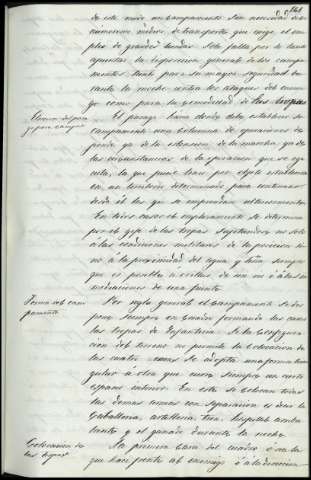 de este modo un campamento sin necesidad de
numeroso medios de transporte que exige el em
pleo de grandes tiendas. Solo falta por lo tanto
apuntar la disposicion general de los campa
mentos tanto para su mayor seguridad du
rante la noche contra los ataques del enemi
go como para la comodidad de las tropas
El parage para donde deba establecer su
campamento una columna de operaciones de
pende ya de la estension de la marcha ya de
las circunstancias de la operacion que se eje
cuta, la que puede tener por objeto establecerse
en un territorio determinado para continuar
desde él las que se emprendan ulteriormente.
En todos casos el emplazamiento se determina
por el gefe de las tropas sugetandose no solo
a las condiciones militares de la posicion si
nó á la proximidad del agua y leña siempre
que es posible á orillas de un rio ó á las in
mediaciones de una fuente
Forma del cam
pamento
Por regla general el campamento se dis
pone siempre en cuadro formando las caras
las tropas de Infanteria. Si la configura
cion del terreno no permite la colocacion de
las cuatro caras se adopta una forma trian
gular ú otra que cierra siempre un cierto
espacio interior. En este se colocan todas
las demas armas con separacion es decir la
Caballeria, artilleria, tren, Hospital ambu
lante y el ganado durante la noche.
Colocacion de
las tropas
La primera cara del cuadro, ó sea la
que hace frente al enemigo ó á la direccion